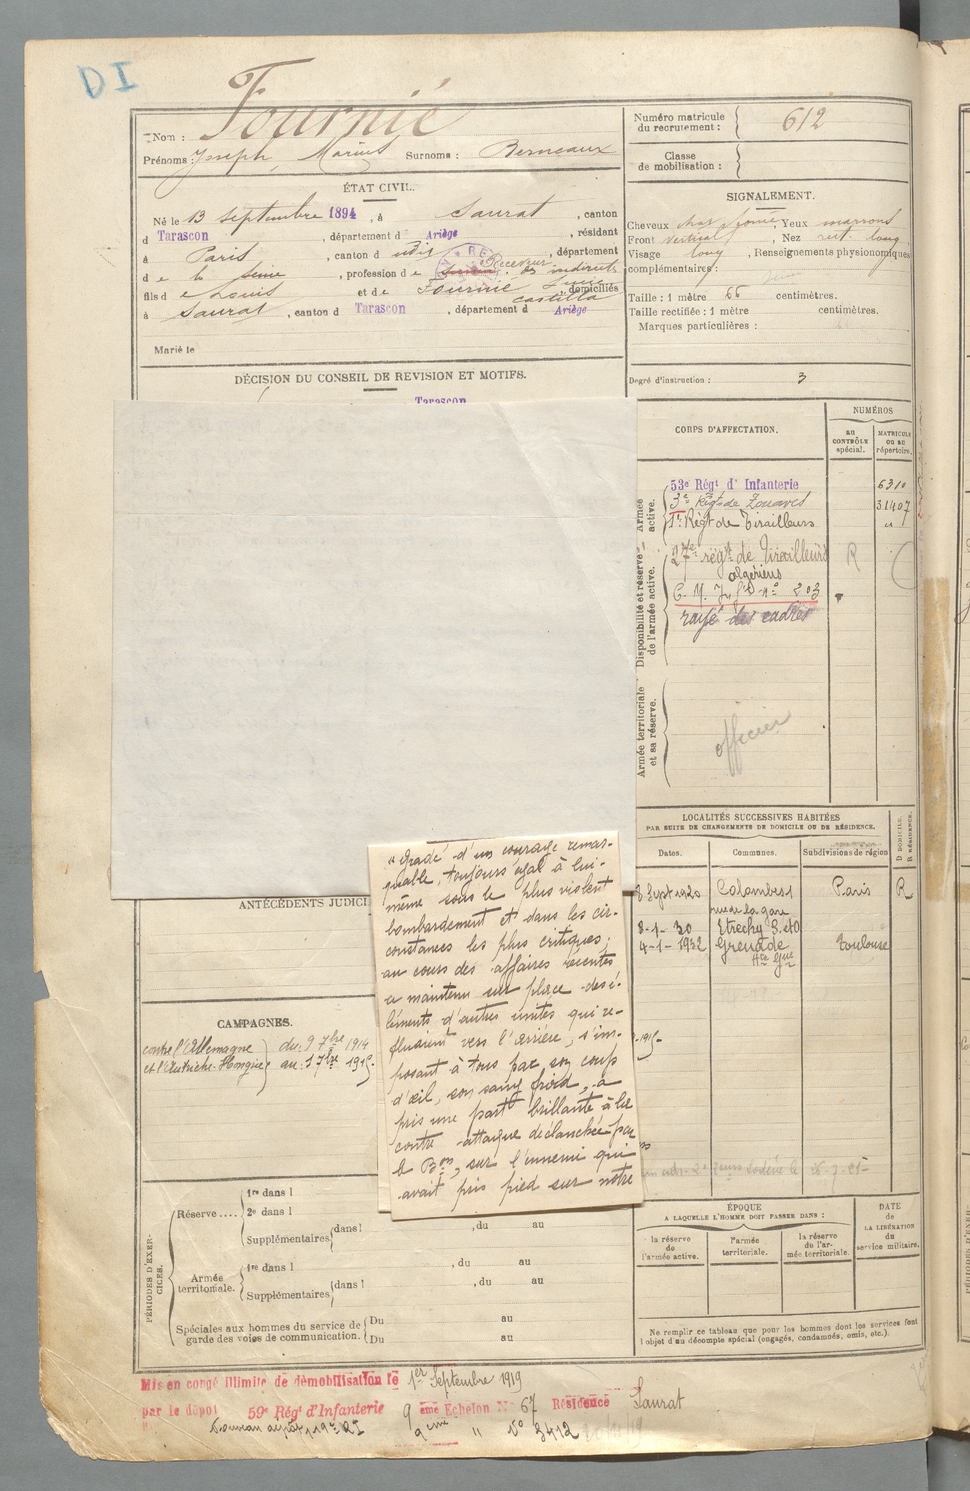 DI
Nom : Fournié
Prénoms : Joseph, Marius Surnoms : Berneaux
Numéro matricule du recrutement : 612
Classe de mobilisation :
ÉTAT CIVIL.
Né le 13 septembre 1894, à Saurat, canton
d Tarascon, département d Ariège, résident
à Paris, canton d udig, département
d e la Seine, profession d e Receveur des indirects
fils d e Louis et de Fournié Castilla domiciliés
à Saurat, canton d Tarascon, département d Ariège
Marié le
SIGNALEMENT.
Cheveux chat. foncé, Yeux marrons
Front vertical, Nez rect. long,
Visage long, Renseignements physionomiques
complémentaires :
Taille : 1 mètre 66 centimètres.
Taille rectifiée : 1 mètre centimètres.
Marques particulières :
Degré d'instruction : 3
DÉCISION DU CONSEIL DE REVISION ET MOTIFS.
Tarascon
CORPS D'AFFECTATION.
NUMÉROS
AU CONTRÔLE spécial.
MATRICULE OU AU répertoire.
Armée active.
53e Régt d' Infanterie 6310
3e Régt de Zouaves 31407
1er Régt de Tirailleurs "
Disponibilité et réserve de l'armée active.
27e régt de Tirailleurs R
algériens
C. M. Inf. n° 203
rayé des cadres
Armée territoriale et sa réserve.
officier
LOCALITÉS SUCCESSIVES HABITÉES
PAR SUITE DE CHANGEMENTS DE DOMICILE OU DE RÉSIDENCE.
Dates. Communes. Subdivisions de région D DOMICILE. R RÉSIDENCE.
8 Sept 1920 Colombes Paris R
rue de la gare
8-1-30 Etrechy S. et O
4-1-1932 Grenade Toulouse
Hte Gne
"Gradé d'un courage remar-
quable, toujours égal à lui-
même sous le plus violent
bombardement et dans les cir-
constances les plus critiques;
au cours des affaires récentes
a maintenu sur place des é-
léments d'autres unités qui re-
fluaient vers l'arrière, s'im-
posant à tous par son coup
d'œil, son sang froid, a
pris une part brillante à la
contre attaque déclanchée par
le Bon, sur l'ennemi qui
avait pris pied sur notre
ANTÉCÉDENTS JUDICI
CAMPAGNES.
contre l'Allemagne du 9 7bre 1914
et l'Autriche-Hongrie au 1 7bre 1919.
PÉRIODES D'EXERCICES.
Réserve....
1re dans l
2e dans l
Supplémentaires dans l , du au
Armée territoriale.
1re dans l , du au
Supplémentaires dans l , du au
Spéciales aux hommes du service de garde des voies de communication.
Du au
Du au
ÉPOQUE
A LAQUELLE L'HOMME DOIT PASSER DANS :
la réserve de l'armée active.
l'armée territoriale.
la réserve de l'armée territoriale.
DATE de LA LIBÉRATION du service militaire.
Ne remplir ce tableau que pour les hommes dont les services font
l'objet d'un décompte spécial (engagés, condamnés, omis, etc.).
Mis en congé illimité de démobilisation le 1er Septembre 1919
par le dépôt 59e Régt d'Infanterie 9 ème Echelon N° 67 Résidence Saurat
Nouveau dépôt, 19e RI 9 ème " N° 3412